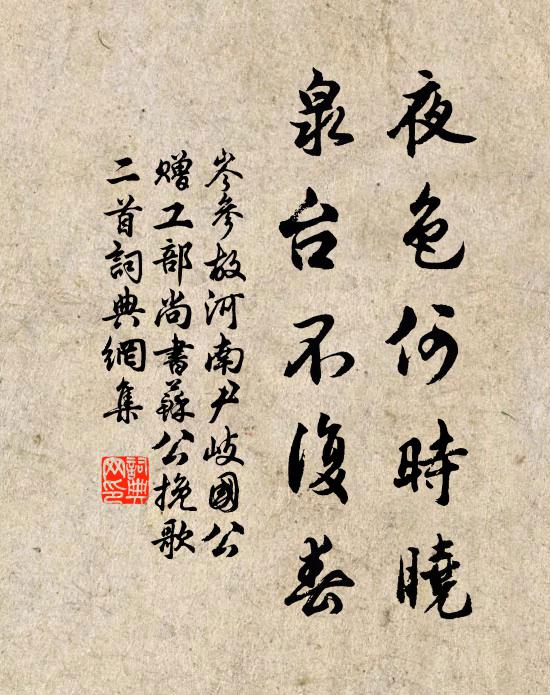 夜色何時曉
泉台不復春
岑參故河南尹岐國公
贈工部尚書蘇公挽歌
二首詞典網集
詞典
网印